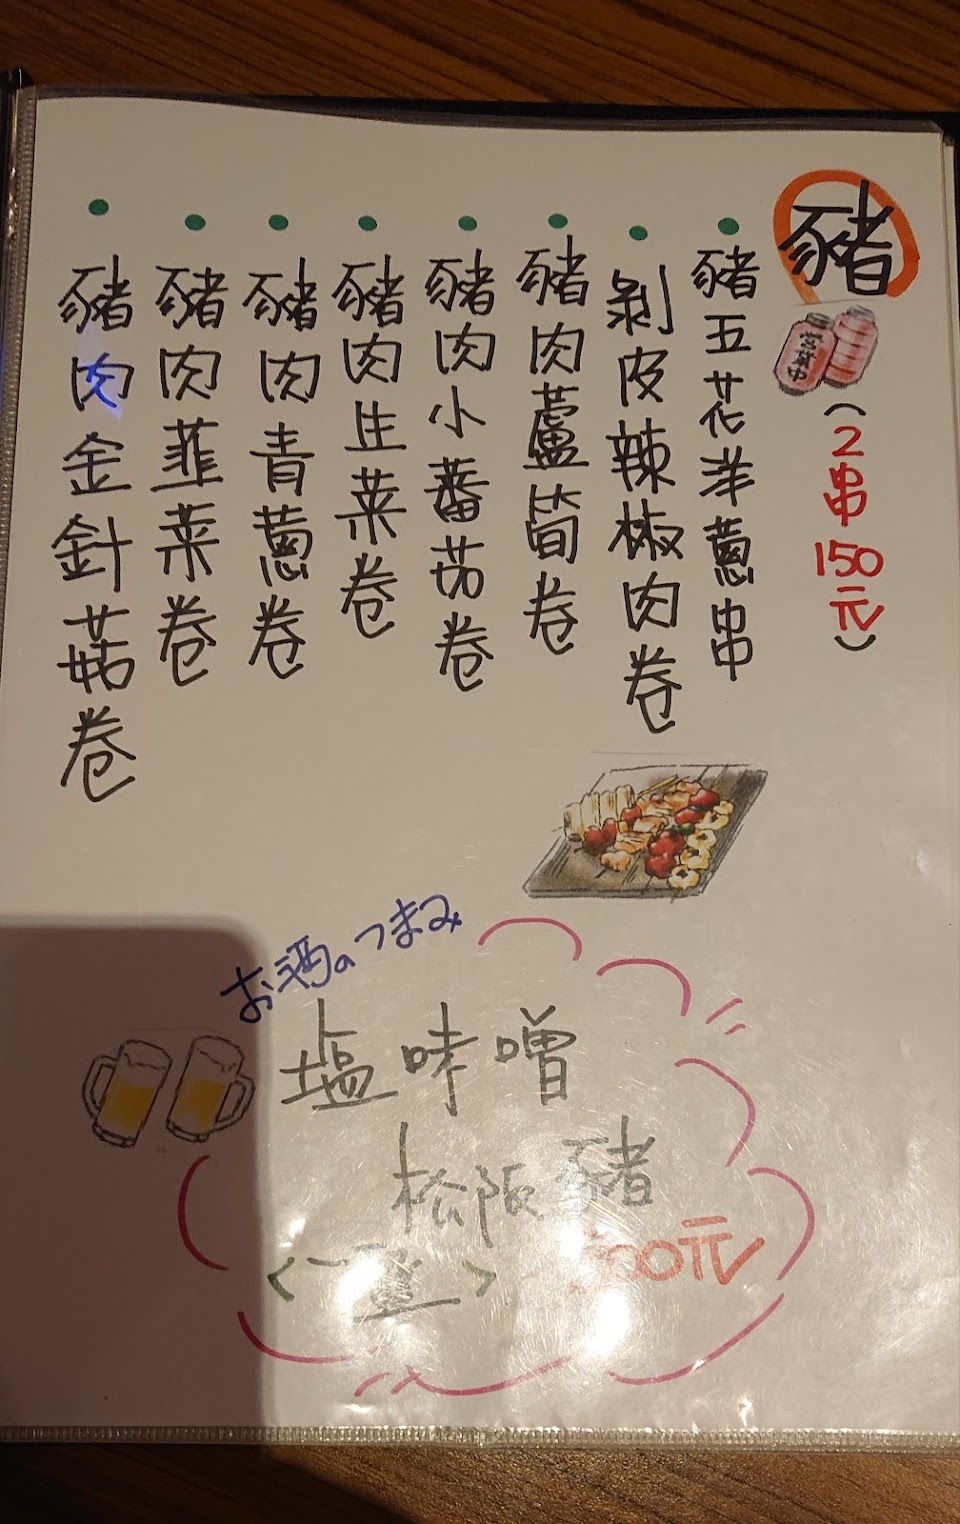 豬
営業中
(2串150元)
豬五花洋蔥串
剝皮辣椒肉卷
豬肉蘆筍卷
豬肉小蕃茄卷
豬肉生菜卷
豬肉青蔥卷
豬肉韮菜卷
豬肉金針菇卷
お酒のつまみ
塩味噌
松阪豬
<一盤>
00元